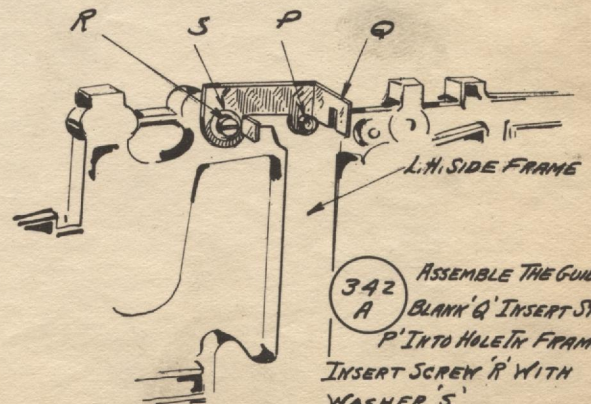 R S P Q
L.H. SIDE FRAME
342
A
ASSEMBLE THE
BLANK 'Q' INSERT
P' INTO HOLE IN
INSERT SCREW 'R' WITH
WASHER 'S'